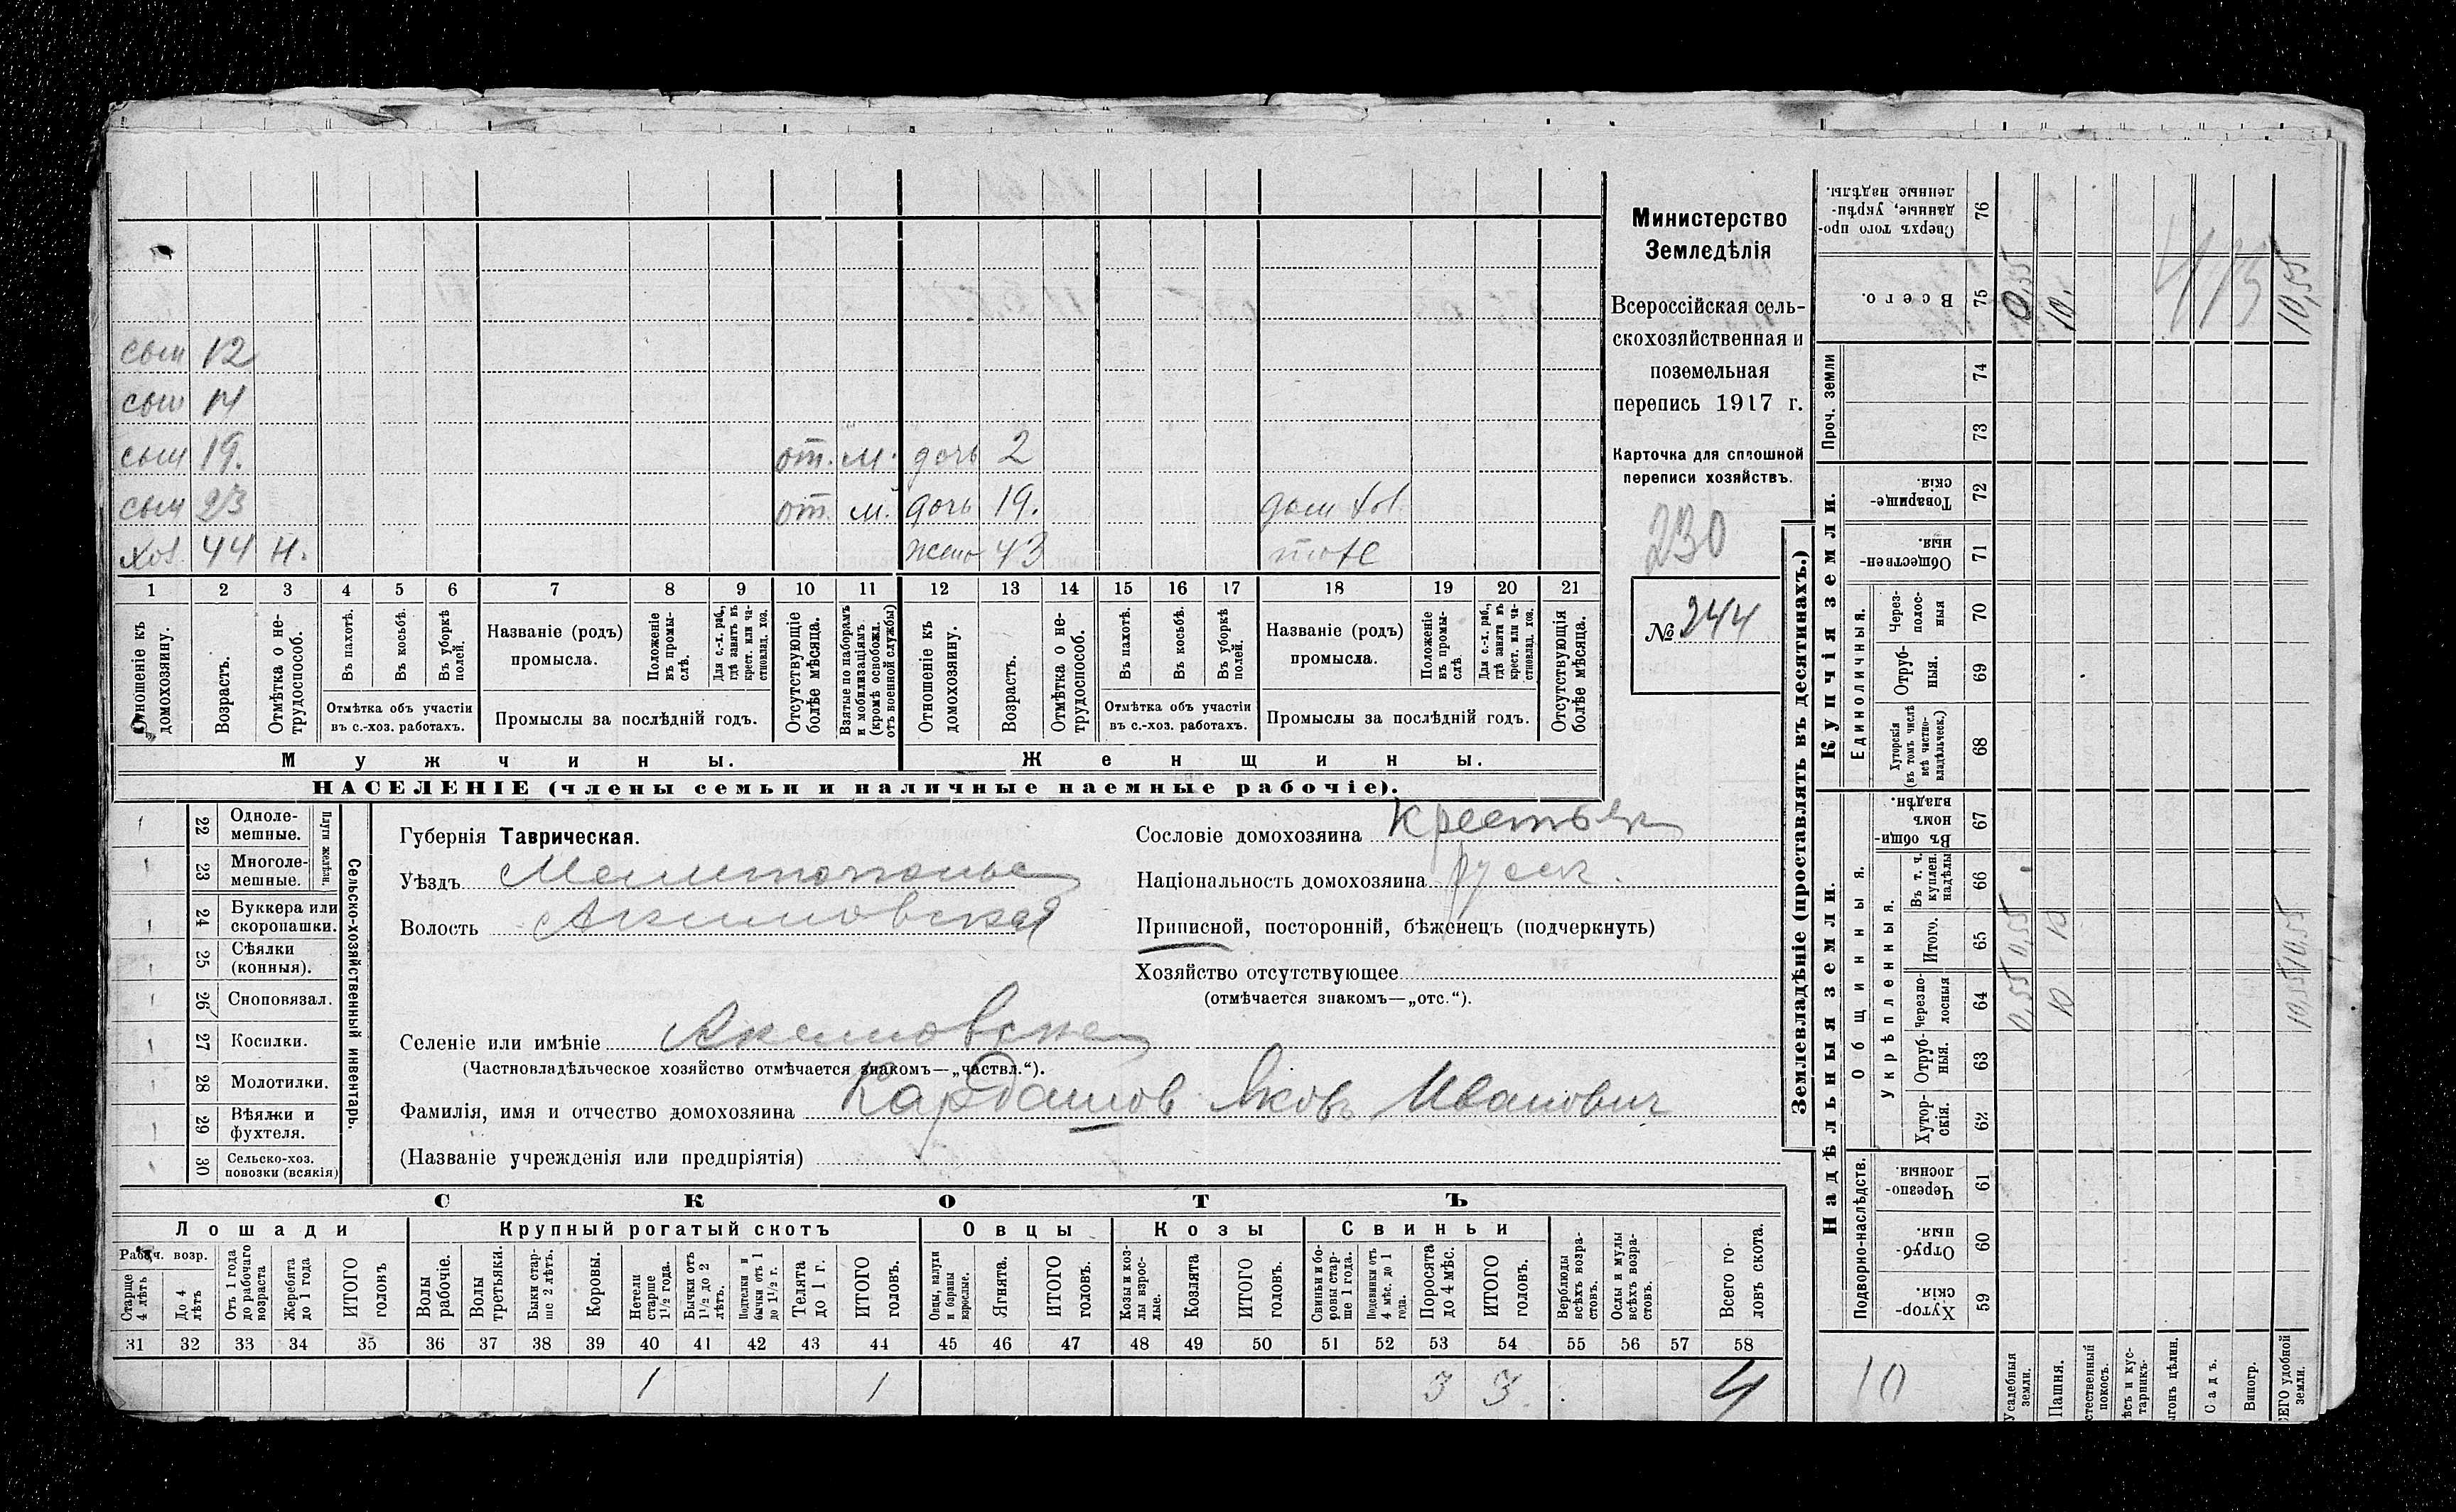 сын 12
сын 14
сын 19. от. м. дочь 2
сын 23 от. м. дочь 19. дом. хоз.
хоз. 44 Н. жена 43 тоже
1 2 3 4 5 6 7 8 9 10 11 12 13 14 15 16 17 18 19 20 21
Отношеніе къ домохозяину.
Возрастъ.
Отмѣтка о не-
трудоспособ.
Въ пахотѣ.
Въ косьбѣ.
Въ уборкѣ
полей.
Отмѣтка объ участіи
въ с.-хоз. работахъ.
Названіе (родъ)
промысла.
Положеніе
въ промы-
слѣ.
Для с.-х. раб.,
гдѣ занятъ въ
крест. или ча-
стновлад. хоз.
Промыслы за послѣдній годъ.
Отсутствующіе
болѣе мѣсяца.
Взятые по наборамъ
и мобилизаціямъ
(кромѣ освобожд.
отъ военной службы)
Отношеніе къ
домохозяину.
Возрастъ.
Отмѣтка о не-
трудоспособ.
Въ пахотѣ.
Въ косьбѣ.
Въ уборкѣ
полей.
Отмѣтка объ участіи
въ с.-хоз. работахъ.
Названіе (родъ)
промысла.
Положеніе
въ промы-
слѣ
Для с.-х. раб.,
гдѣ занята въ
крест. или ча-
стновлад. хоз.
Промыслы за послѣдній годъ.
Отсутствующія
болѣе мѣсяца.
Мужчины. Женщины.
НАСЕЛЕНІЕ (члены семьи и наличные наемные рабочіе).
Министерство
Земледѣлія
Всероссійская сель-
скохозяйственная и
поземельная
перепись 1917 г.
Карточка для сплошной
переписи хозяйствъ.
230
№ 244
22 Одноле-
мешные.
23 Многоле-
мешные.
Плуги желѣзн.
24 Буккера или
скоропашки.
25 Сѣялки
(конныя).
26 Сноповязал.
27 Косилки.
28 Молотилки.
29 Вѣялки и
фухтеля.
30 Сельско-хоз.
повозки (всякія)
Сельско-хозяйственный инвентарь.
Губернія Таврическая.
Уѣздъ Мелитопольс
Волость Акимовская
Селеніе или имѣніе Акимовка
(Частновладѣльческое хозяйство отмѣчается знакомъ—„частвл.“).
Фамилія, имя и отчество домохозяина Кардашов Яковъ Иванович
(Названіе учрежденія или предпріятія)
Сословіе домохозяина крестьян
Національность домохозяина русск.
Приписной, посторонній, бѣженецъ (подчеркнуть)
Хозяйство отсутствующее
(отмѣчается знакомъ—„отс.“).
СКОТЪ
Лошади Крупный рогатый скотъ Овцы Козы Свиньи
Рабоч. возр.
Старше
4 лѣтъ
До 4
лѣтъ
Отъ 1 года
до рабочаго
возраста
Жеребята
до 1 года
ИТОГО
головъ
Волы
рабочіе.
Волы
третьяки.
Быки стар-
ше 2 лѣтъ.
Коровы.
Нетели
старше
1½ года.
Бычки отъ
1½ до 2
лѣтъ.
Подтелки и
бычки отъ 1
до 1½ г.
Телята
до 1 г.
ИТОГО
головъ.
Овцы, валухи
и бараны
взрослые.
Ягнята.
ИТОГО
головъ.
Козы и коз-
лы взрос-
лые.
Козлята
ИТОГО
головъ.
Свиньи и бо-
ровы стар-
ше 1 года.
Подсвинки отъ
4 мѣс. до 1
года.
Поросята
до 4 мѣс.
ИТОГО
головъ.
Верблюды
всѣхъ возра-
стовъ.
Ослы и мулы
всѣхъ возра-
стовъ.
Всего го-
ловъ скота.
31 32 33 34 35 36 37 38 39 40 41 42 43 44 45 46 47 48 49 50 51 52 53 54 55 56 57 58
1 1 3 3 4
Землевладѣніе (проставлять въ десятинахъ.)
Надѣльныя земли. Купчія земли. Проч. земли
Подворно-наслѣдств.
Общинныя.
Укрѣпленныя.
Единоличныя.
Хутор-
скія 59
Отруб-
ныя. 60
Черезпо-
лосныя. 61
Хутор-
скія. 62
Отруб-
ныя. 63
Черезпо-
лосныя 64
Итого. 65
Въ т. ч.
куплен.
надѣлы 66
Въ общи-
номъ
владѣн. 67
Хуторскія
(въ томъ числѣ
всѣ частно-
владѣльческ.) 68
Отруб-
ныя. 69
Через-
полос-
ныя 70
Обществен-
ныя. 71
Товарище-
скія. 72
73
74
Всего. 75
Сверхъ того про-
данные, укрѣп-
ленные надѣлы. 76
10
Усадебныя
земли. 0,55 0,55 0,55
Пашня. 10 10 10,
стественный
покосъ.
ѣсъ и кус-
тарникъ.
ыгонъ цѣлин.
Садъ.
Виногр.
СЕГО удобной
земли. 10,55 10,55 10,55